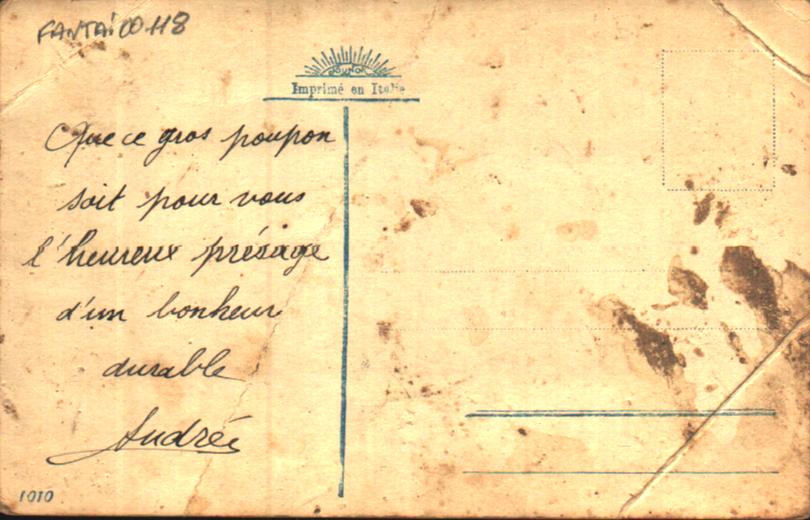 FANTAI00118
Imprimé en Italie
Que ce gros poupon
soit pour vous
l'heureux présage
d'un bonheur
durable
Andrée
1010